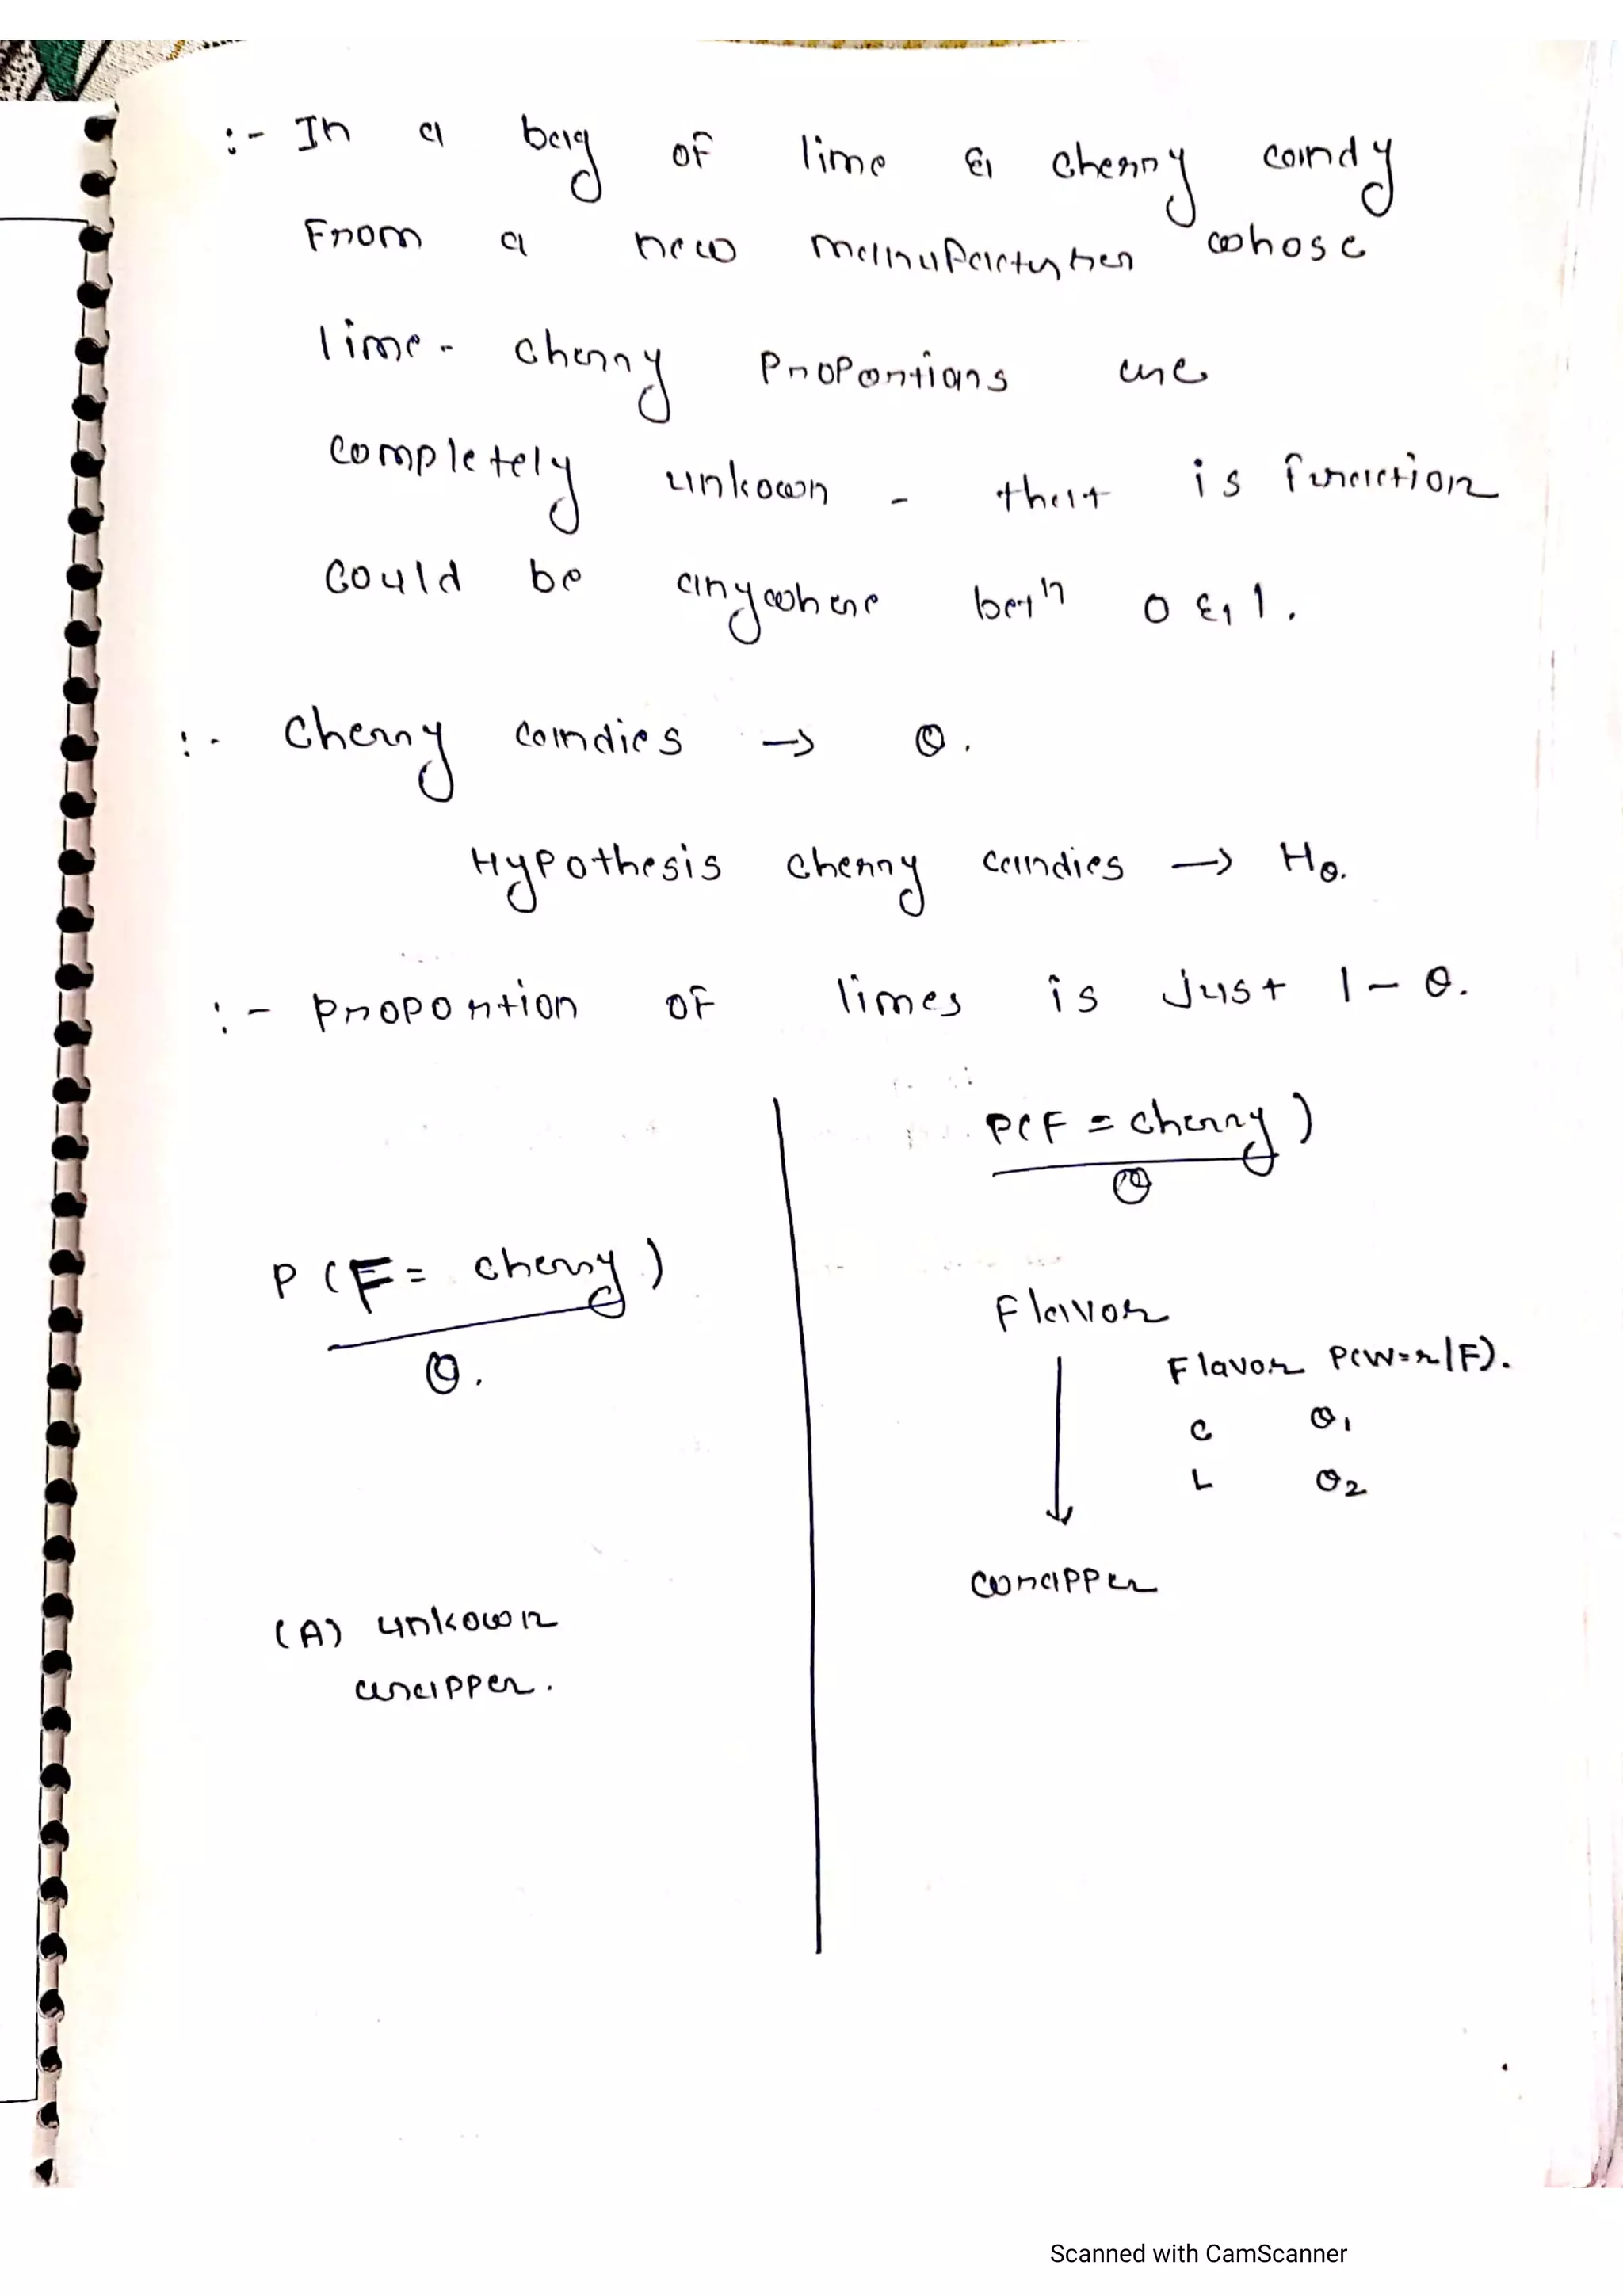 :- In a bag of lime & cherry candy
From a new manufacturer whose
lime - cherry Proportions are
completely unkown - that is function
could be anywhere betn 0 & 1.
:- Cherry candies → θ.
Hypothesis cherry candies → Hθ.
:- proportion of limes is just 1 - θ.
P(F = cherry)
θ
P (F = cherry)
θ.
Flavor
Flavor P(W=r|F).
C θ1
L θ2
wrapper
(A) unkown
wrapper.
Scanned with CamScanner